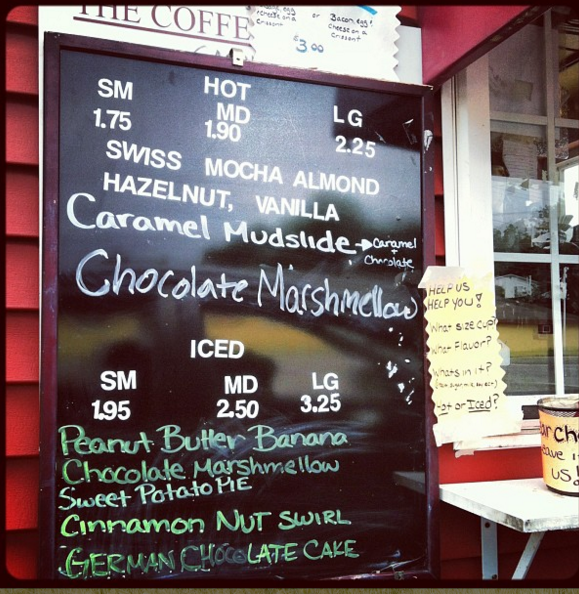 THE COFFE
cheese on a
crissont
or
Bacon, egg &
Cheese on a
Crissont
3.00
HOT
SM MD LG
1.75 1.90 2.25
SWISS MOCHA ALMOND
HAZELNUT, VANILLA
Caramel Mudslide → Caramel
+
Chocolate
Chocolate Marshmellow
ICED
SM MD LG
1.95 2.50 3.25
Peanut Butter Banana
Chocolate Marshmellow
Sweet Potato PiE
Cinnamon Nut SWIRL
GERMAN CHOCOLATE CAKE
HELP US
HELP YOU!
What size cup?
What Flavor?
Whats in it?
Hot or Iced?
US